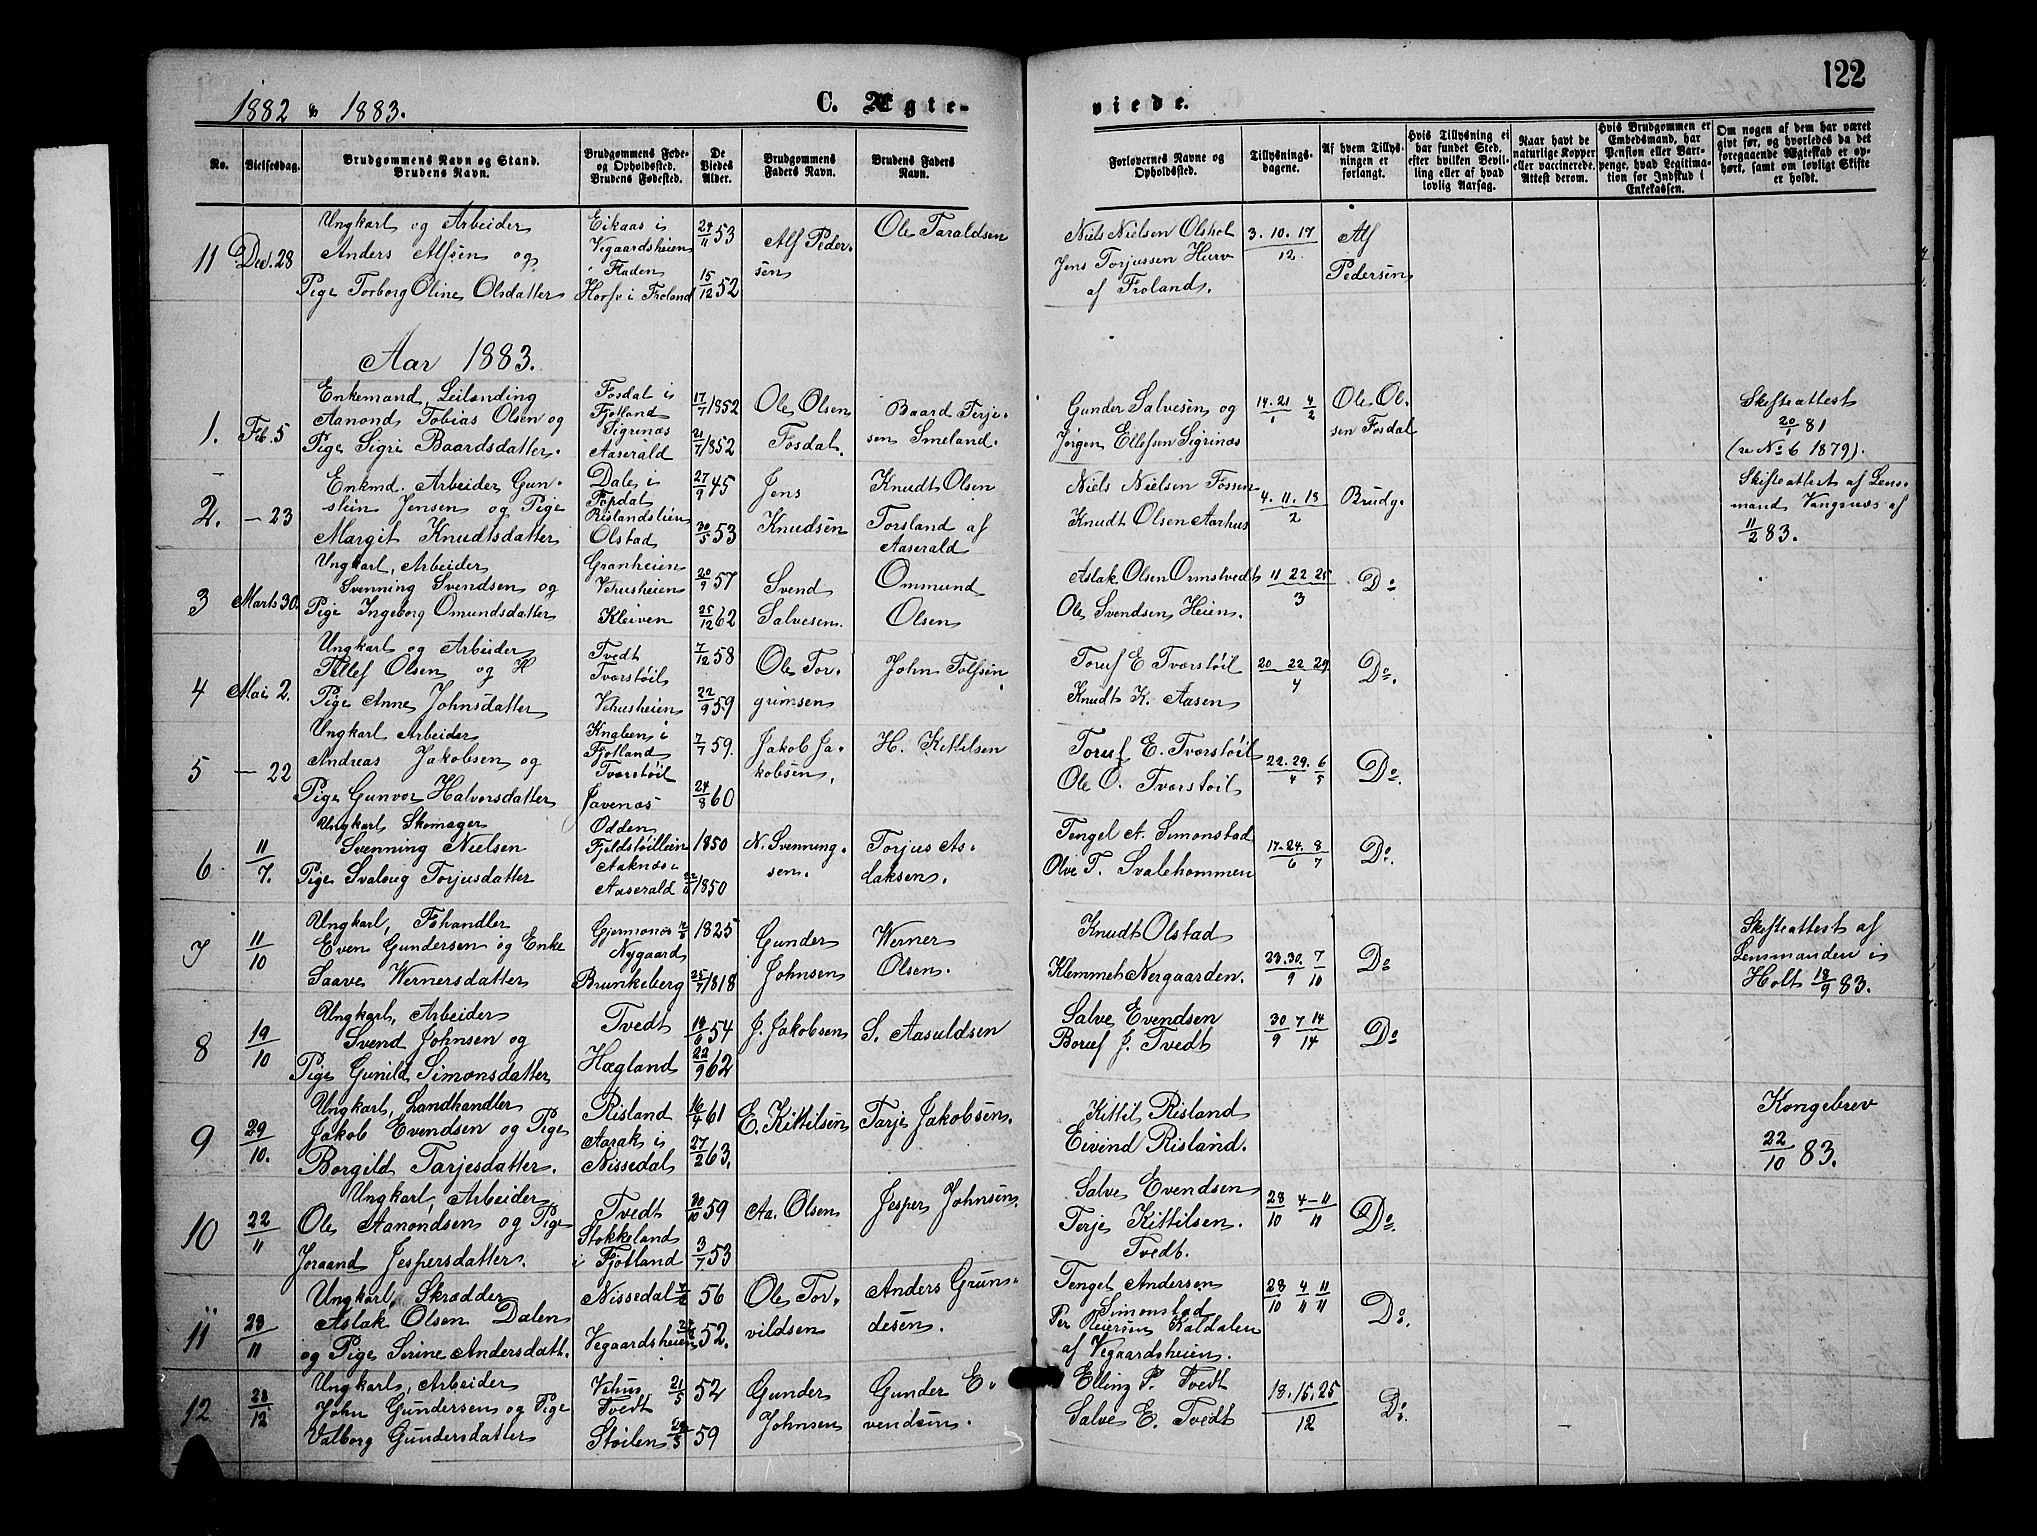 122
1882 & 1883.
C. Ægte-
viede.
No.
Vielsesdag.
Brudgommens Navn og Stand.
Brudens Navn.
Brudgommens Føde-
og Opholdssted.
Brudens Fødested.
De
Viedes
Alder.
Brudgommens
Faders Navn.
Brudens Faders
Navn.
Forlovernes Navne og
Opholdssted.
Tillysnings-
dagene.
Af hvem Tillys-
ningen er
forlangt.
Hvis Tillysning ei
har fundet Sted,
efter hvilken Bevil-
ling eller af hvad
lovlig Aarsag.
Naar havt de
naturlige Kopper
eller vaccinerede.
Attest derom.
Hvis Brudgommen er
Embedsmand, har
Pension eller Vart-
penge, hvad Legitima-
tion for Indskud i
Enkekassen.
Om nogen af dem har været
gift før, og hvorledes da det
foregaaende Ægteskab er op-
hørt, samt om lovligt Skifte
er holdt.
11 Dec. 28
Ungkarl og Arbeider
Anders Alfsen og
Pige Torborg Oline Olsdatter
Eikaas i
Vegaardsheien
i Fladen
Horfv i Froland
24/11 53
15/12 52
Alf Peder-
sen
Ole Taraldsen
Niels Nielsen Olshol
Jens Torjussen Hurv
af Froland.
3. 10. 17/12.
Alf
Pedersen
Aar 1883.
1. Feb. 5
Enkemand, Leilænding
Aanond Tobias Olsen og
Pige Sigri Baardsdatter.
Fosdal i
Fjotland
Sigrenæs
Aaserald
17/7 1852
21/7 1852
Ole Olsen
Fosdal.
Baard Terje-
sen Smeland.
Gunder Salvesen og
Jørgen Ellefsen Sigrinæs
14. 21/1 4/2
Ole Ol-
sen Fosdal
Skifteattest
20/1 81
(v No 6 1879).
2. — 23
Enkmd. Arbeider Gun-
stein Jensen og Pige
Margit Knudtsdatter
Dale i
Topdal
Rislandslien
Olstad
27/9 45
30/5 53
Jens
Knudsen
Knudt Olsen
Torsland af
Aaserald
Niels Nielsen Fossen
Knudt Olsen Aarhus
4. 11. 18/2
Brudg.
Skifteattest af Lens-
mand Vangsnæs af
11/2 83.
3 Marts 30.
Ungkarl, Arbeider
Svenning Svendsen og
Pige Ingeborg Omundsdatter
Granheien
Vehusheien
Kleiven
20/9 57
25/12 62
Svend
Salvesen.
Ommund
Olsen
Aslak Olsen Omstvedt
Ole Svendsen Heien.
11 22 25/3
Do
4 Mai 2.
Ungkarl og Arbeider
Tellef Olsen og H
Pige Anne Johnsdatter
Tvedt
Tvorstøil
Vehusheien
7/12 58
22/9 59
Ole Tor-
grimsen
John Tolfsen
Toruf E Tvorstøil
Knudt K. Aasen
20 22 29/4
Do.
5 — 22
Ungkarl Arbeider
Andreas Jakobsen og
Pige Gunvor Halvorsdatter
Knaben i
Fjotland
Tvorstøil
Javenæs
7/7 59.
24/8 60
Jakob Ja-
kobsen.
H. Kittilsen
Toruf E. Tvorstøil
Ole O. Tvorstøil
22. 29./4 6/5
Do.
6 11/7.
Ungkarl Skomager
Svenning Nielsen
Pige Svaloug Torjusdatter
Odden
Fjeldstøillien
Aaknæs i
Aaserald
1850
1850
N. Svenning-
sen.
Torjus As-
laksen.
Tengel A. Simonstad
Olve T. Svalehommen
17. 24./6 8/7
Do.
7 11/10
Ungkarl, Fehandler
Even Gundersen og Enke
Saave Wernersdatter
Gjermonæs
Nygaard
Brunkeberg
1825
25/7 1818
Gunder
Johnsen
Werner
Olsen.
Knudt Olstad
Klemmet Nergaarden.
23. 30./9 7/10
Do
Skifteattest af
Lensmanden i
Holt 18/9 83.
8 19/10
Ungkarl, Arbeider
Svend Johnsen og
Pige Gunild Simonsdatter
Tvedt
Hægland
18/6 54
22/9 62
J. Jakobsen
S. Aasuldsen
Salve Evendsen
Boruf J. Tvedt
30/9 7 14/14
Do
9 29/10.
Ungkarl, Landhandler
Jakob Evendsen og Pige
Borgild Tarjesdatter.
Risland
Aarak i
Nissedal
16/4 61
27/2 63.
E. Kittilsen
Tarje Jakobsen.
Kittil Risland
Eivind Risland.
Kongebrev
22/10 83.
10 22/11
Ungkarl, Arbeider
Ole Aanondsen og Pige
Joraand Jespersdatter.
Tvedt
Stokkeland
i Fjotland
30/10 59
3/7 53
Aa. Olsen
Jesper Johnsen.
Salve Evendsen
Terje Kittilsen.
Tvedt.
28/10 4-11/11
Do.
11 23/11
Ungkarl, Skrædder
Aslak Olsen Dalen
og Pige Serine Andersdatt.
Nissedal
Vegaardsheien
56
52.
Ole Tor-
vildsen
Anders Grun-
desen.
Tengel Andersen
Simonstad
Per Reiersen Kaldalen
af Vegaardsheien.
28/10 4/11 11/11
Do.
12 28/12
Ungkarl, Arbeider
John Gundersen og Pige
Valborg Gundersdatter
Vehus
Tvedt
Støilen
21/5 52
59
Gunder
Johnsen
Gunder E-
vendsen.
Elling P. Tvedt
Salve E. Tvedt
18. 15. 25/12
Do.